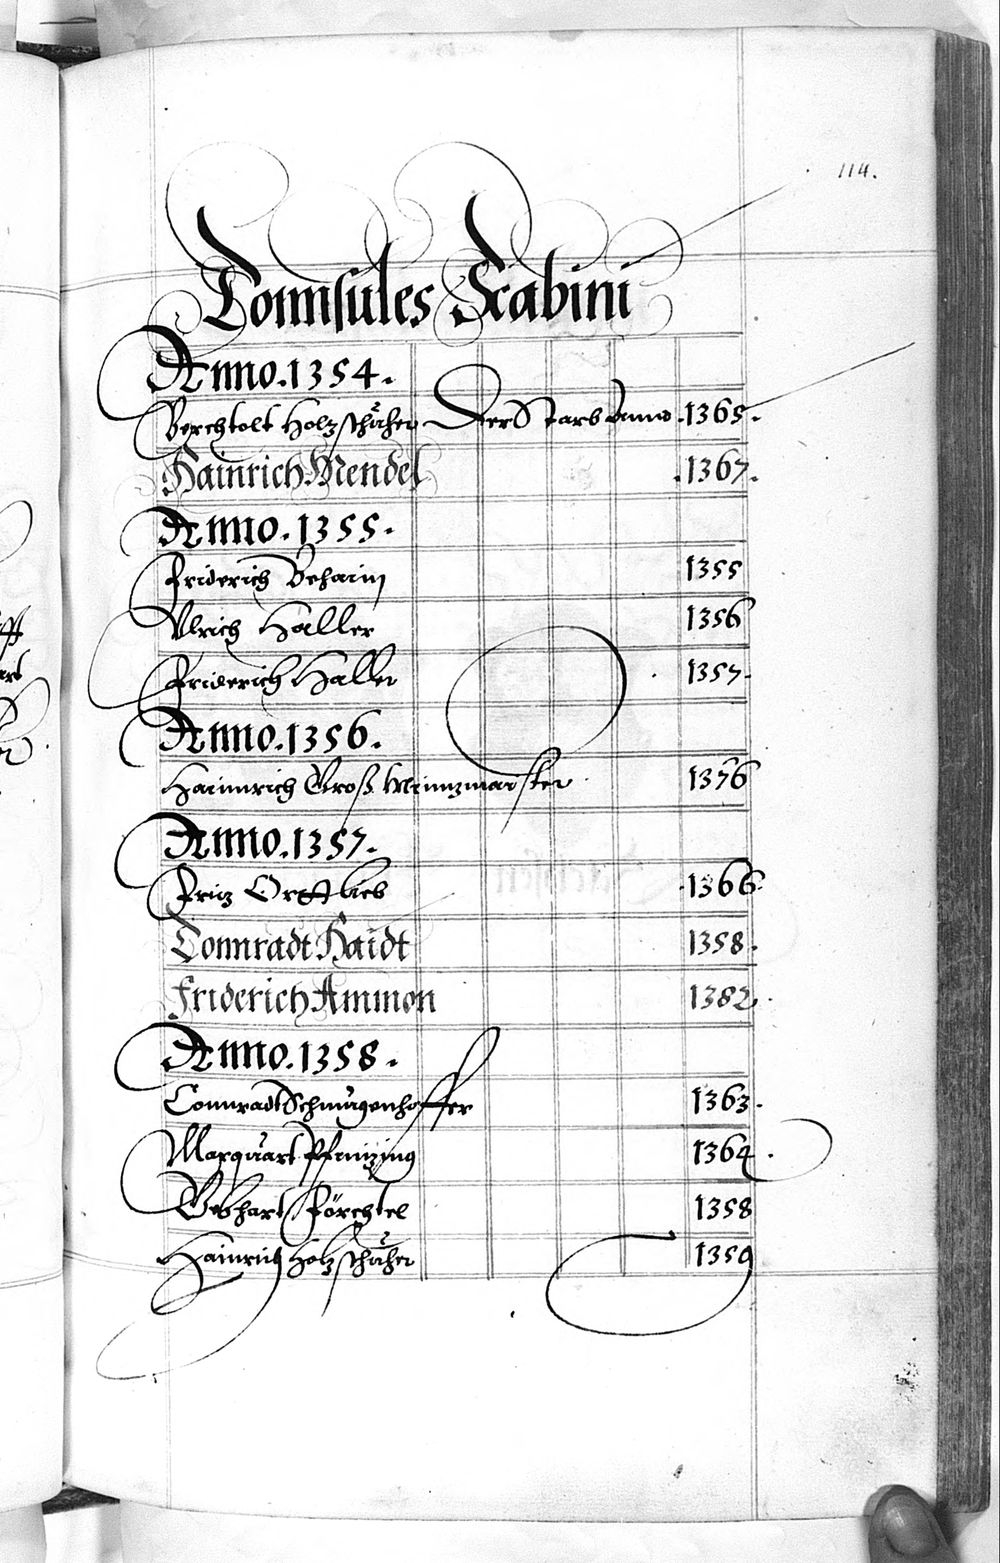 114.
Connsules Scabini
Anno. 1354.
Berchtolt Holzschuher Der Starb Anno. 1365.
Hainrich Mendel .1367.
Anno. 1355.
Friderich Behaim 1355
Ulrich Haller 1356
Friderich Haller 1357.
Anno. 1356.
Hainnrich Groß Münzmaister 1376
Anno. 1357.
Friz Ortlieb .1366.
Connradt Haidt 1358.
Friderich Ammon 1382.
Anno. 1358.
Connradt Schmugenhoffer 1363.
Marquart Pfinzing 1364.
Gebhart Pörchtel 1358
Hainrich Holzschuher 1359